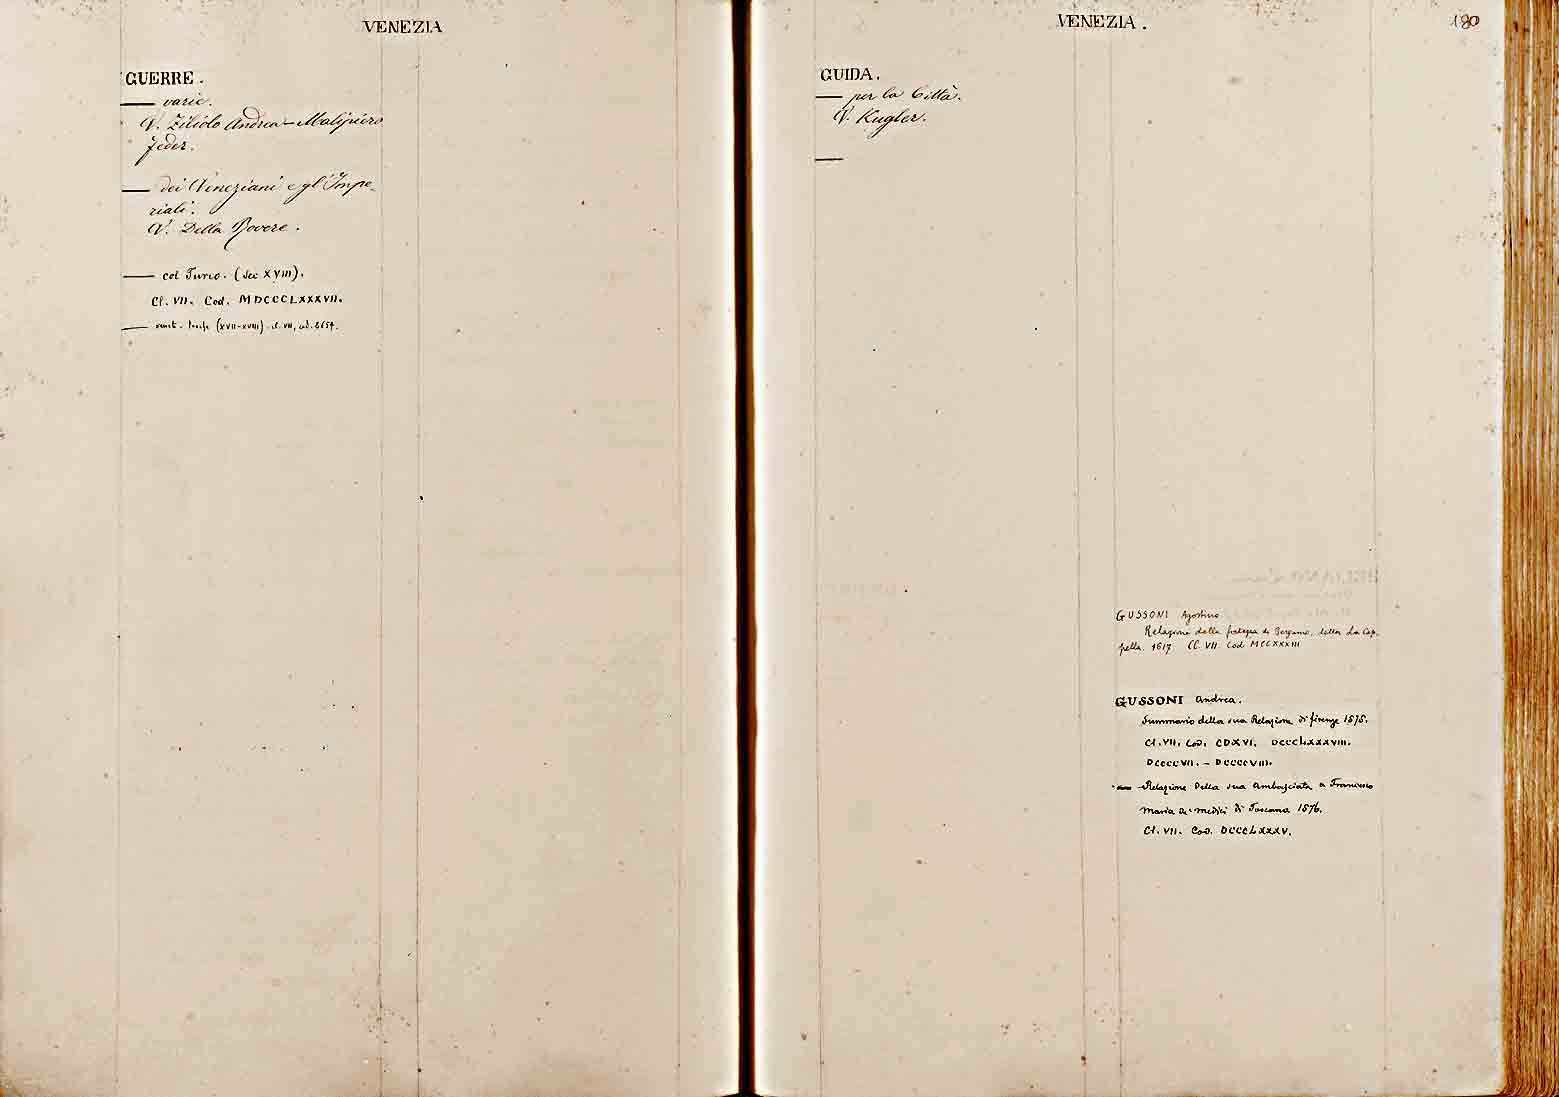 VENEZIA
GUERRE.
— varie.
V. Ziliolo Andrea – Malipiero
Feder.
— dei Veneziani e gl'Impe-
riali.
V. Della Rovere.
— col Turco. (Sec XVIII).
Cl. VII. Cod. MDCCCLXXXVII.
— venet. (XVII-XVIII) cl. VII, cod. 2654.
VENEZIA.
180
GUIDA.
— per la Città.
V. Kugler.
—
GUSSONI Agostino
Relazione della fortezza di Bergamo, detta La Cap-
pella. 1617 Cl. VII Cod MCCXXXIII
GUSSONI Andrea.
Summario della sua Relazione di firenze 1575.
Cl. VII. Cod. CDXVI. DCCCLXXXVIII.
DCCCCVII. – DCCCCVIII.
— Relazione della sua Ambasciata a Francesco
Maria de' medici di Toscana 1576.
Cl. VII. Cod. DCCCLXXXV.